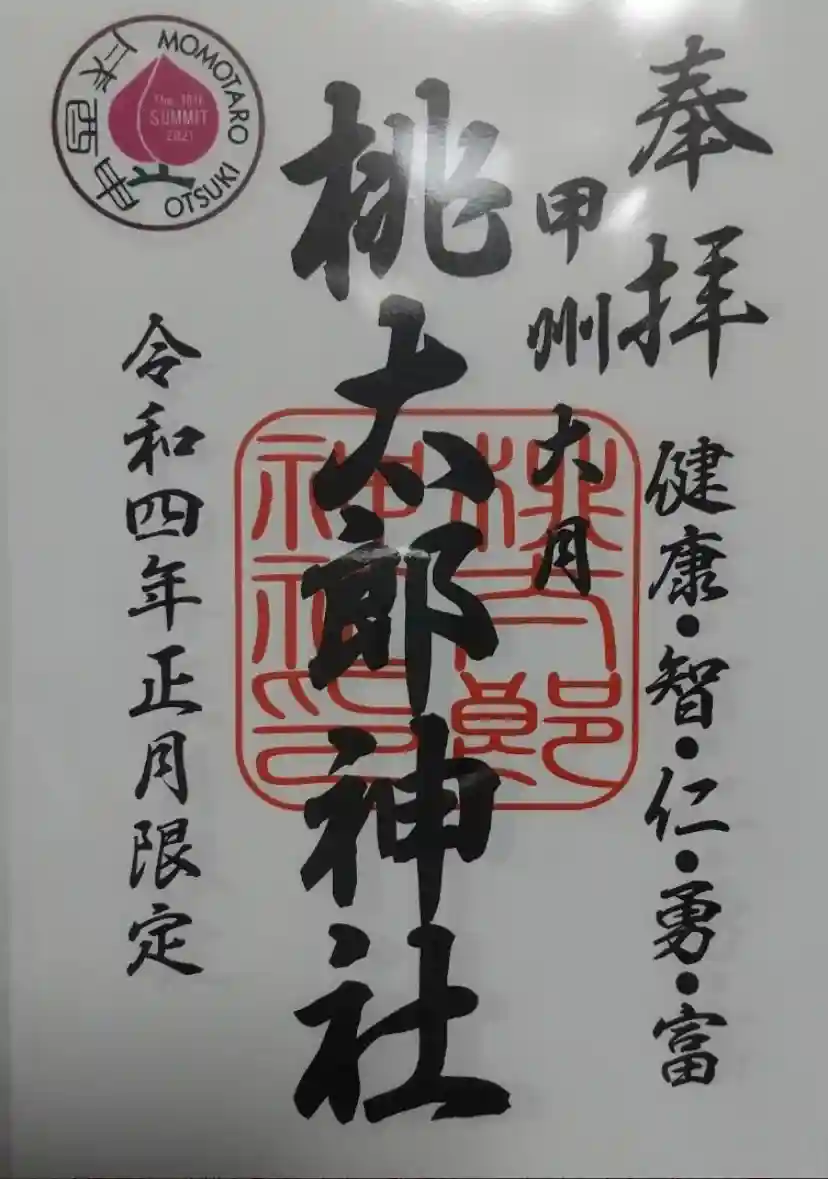 奉拝
健康・智・仁・勇・富
甲州
大月
桃太郎神社
桃太郎
神社印
令和四年正月限定
MOMOTARO
OTSUKI
SUMMIT
2021